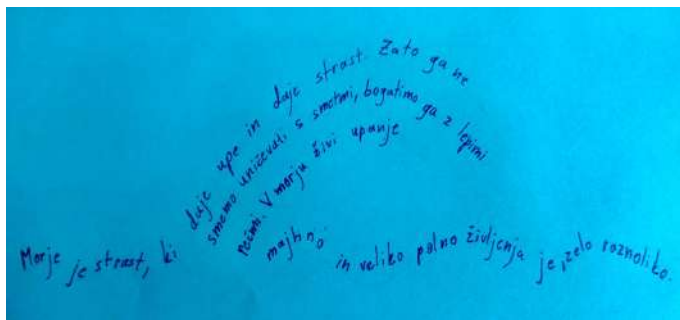 Morje je strast, ki daje upe in daje strast. Zato ga ne
smemo uničevali s smetmi, bogatimo ga z lepimi
rečmi. V morju živi upanje
majhno in veliko polno življenja je, zelo raznoliko.